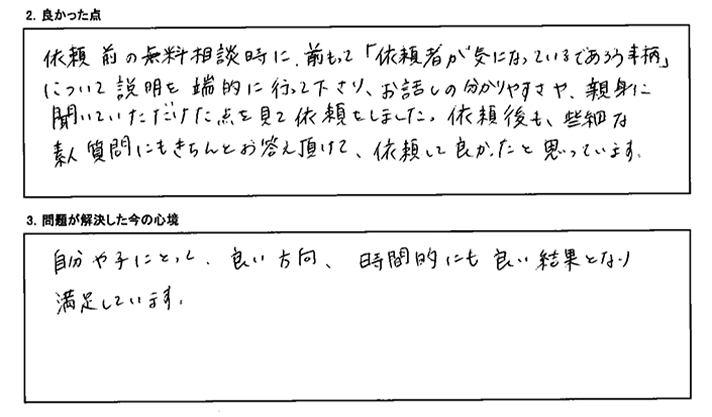 2. 良かった点
依頼前の無料相談時に、前もって「依頼者が気になっているであろう事柄」
について説明を端的に行って下さり、お話しの分かりやすさや、親身に
聞いていただけた点を見て依頼をしました。依頼後も、些細な
素人質問にもきちんとお答え頂けて、依頼して良かったと思っています。
3. 問題が解決した今の心境
自分や子にとって、良い方向、時間的にも良い結果となり
満足しています。